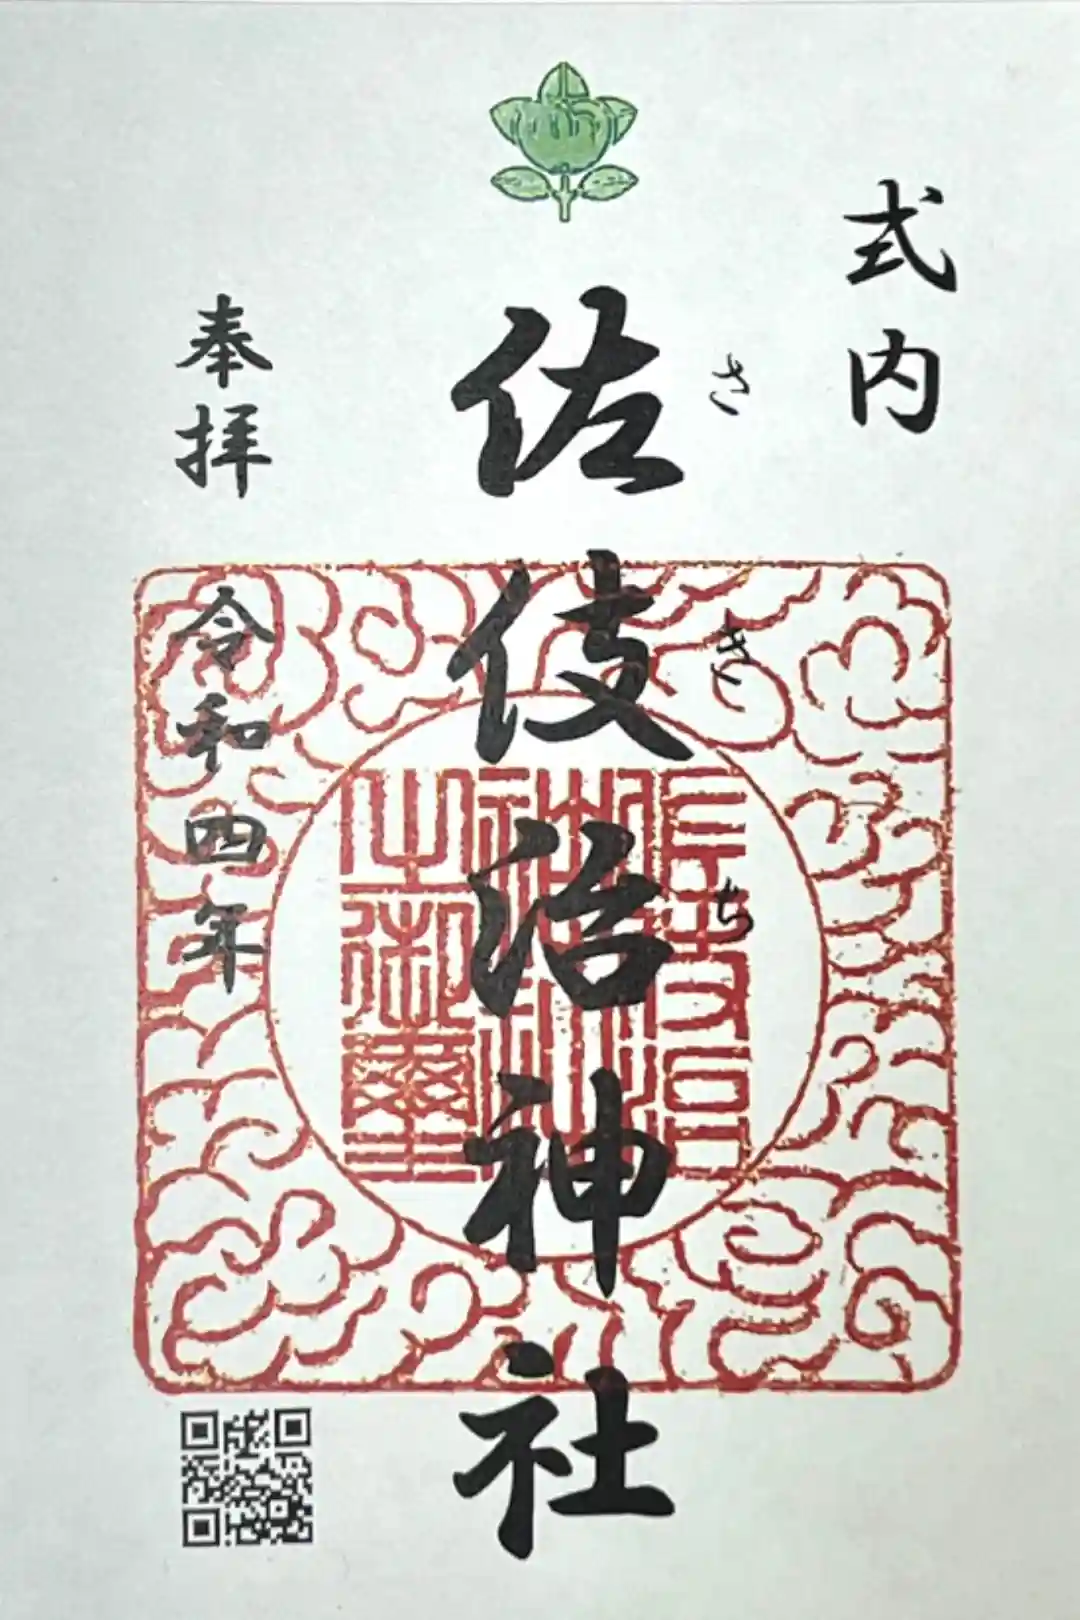 式内
佐伎治神社
さきち
奉拝
令和四年
佐伎治
神社
之御璽